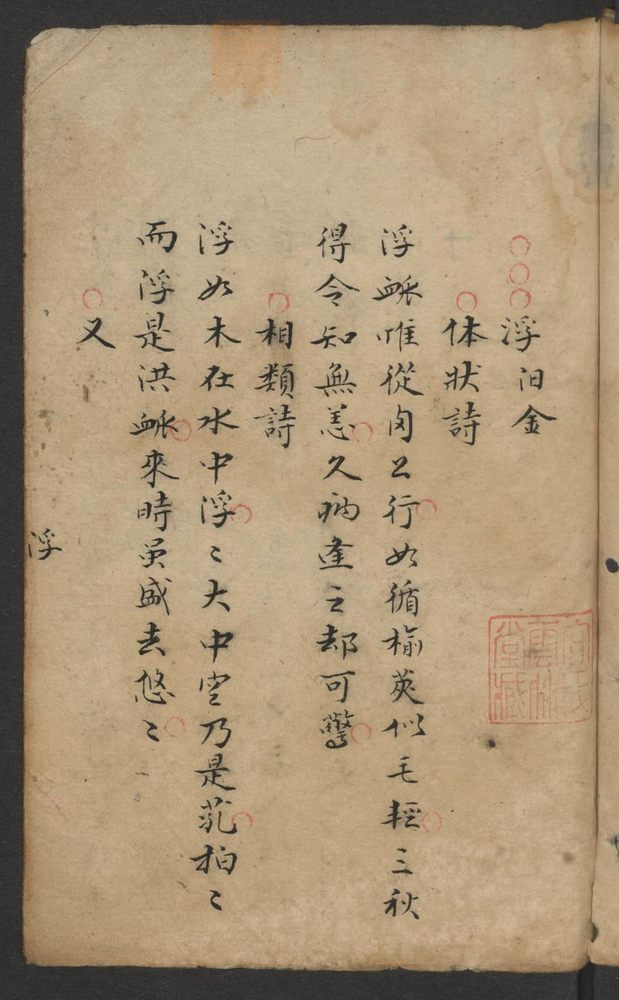 浮 汩金
体状詩
浮脉唯從肉上行如循榆莢似毛輕三秋
得令知無恙久病逢之却可驚
相類詩
浮如木在水中浮〻大中空乃是芤拍〻
而浮是洪脉來時虽盛去悠〻
又
浮